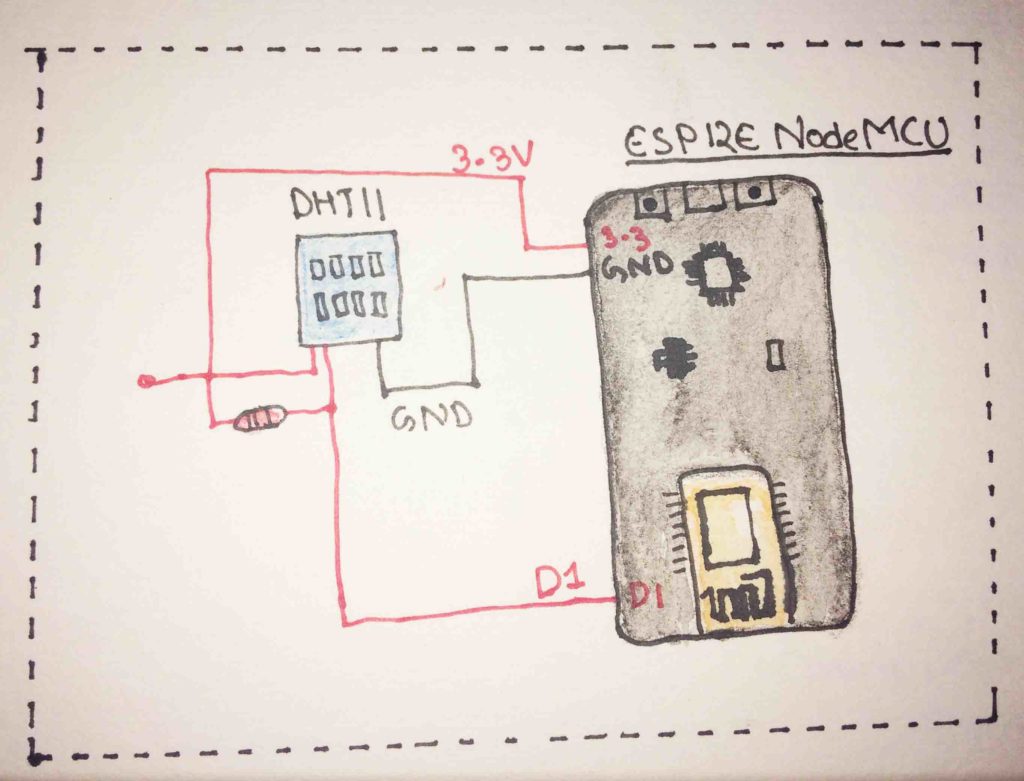 ESP12E NodeMCU
3.3V
DHT11
3.3
GND
GND
D1
D1